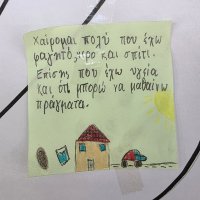 Χαίρομαι πολύ που έχω
φαγητό, νερό και σπίτι.
Επίσης που έχω υγεία
και ότι μπορώ να μαθαίνω
πράγματα.